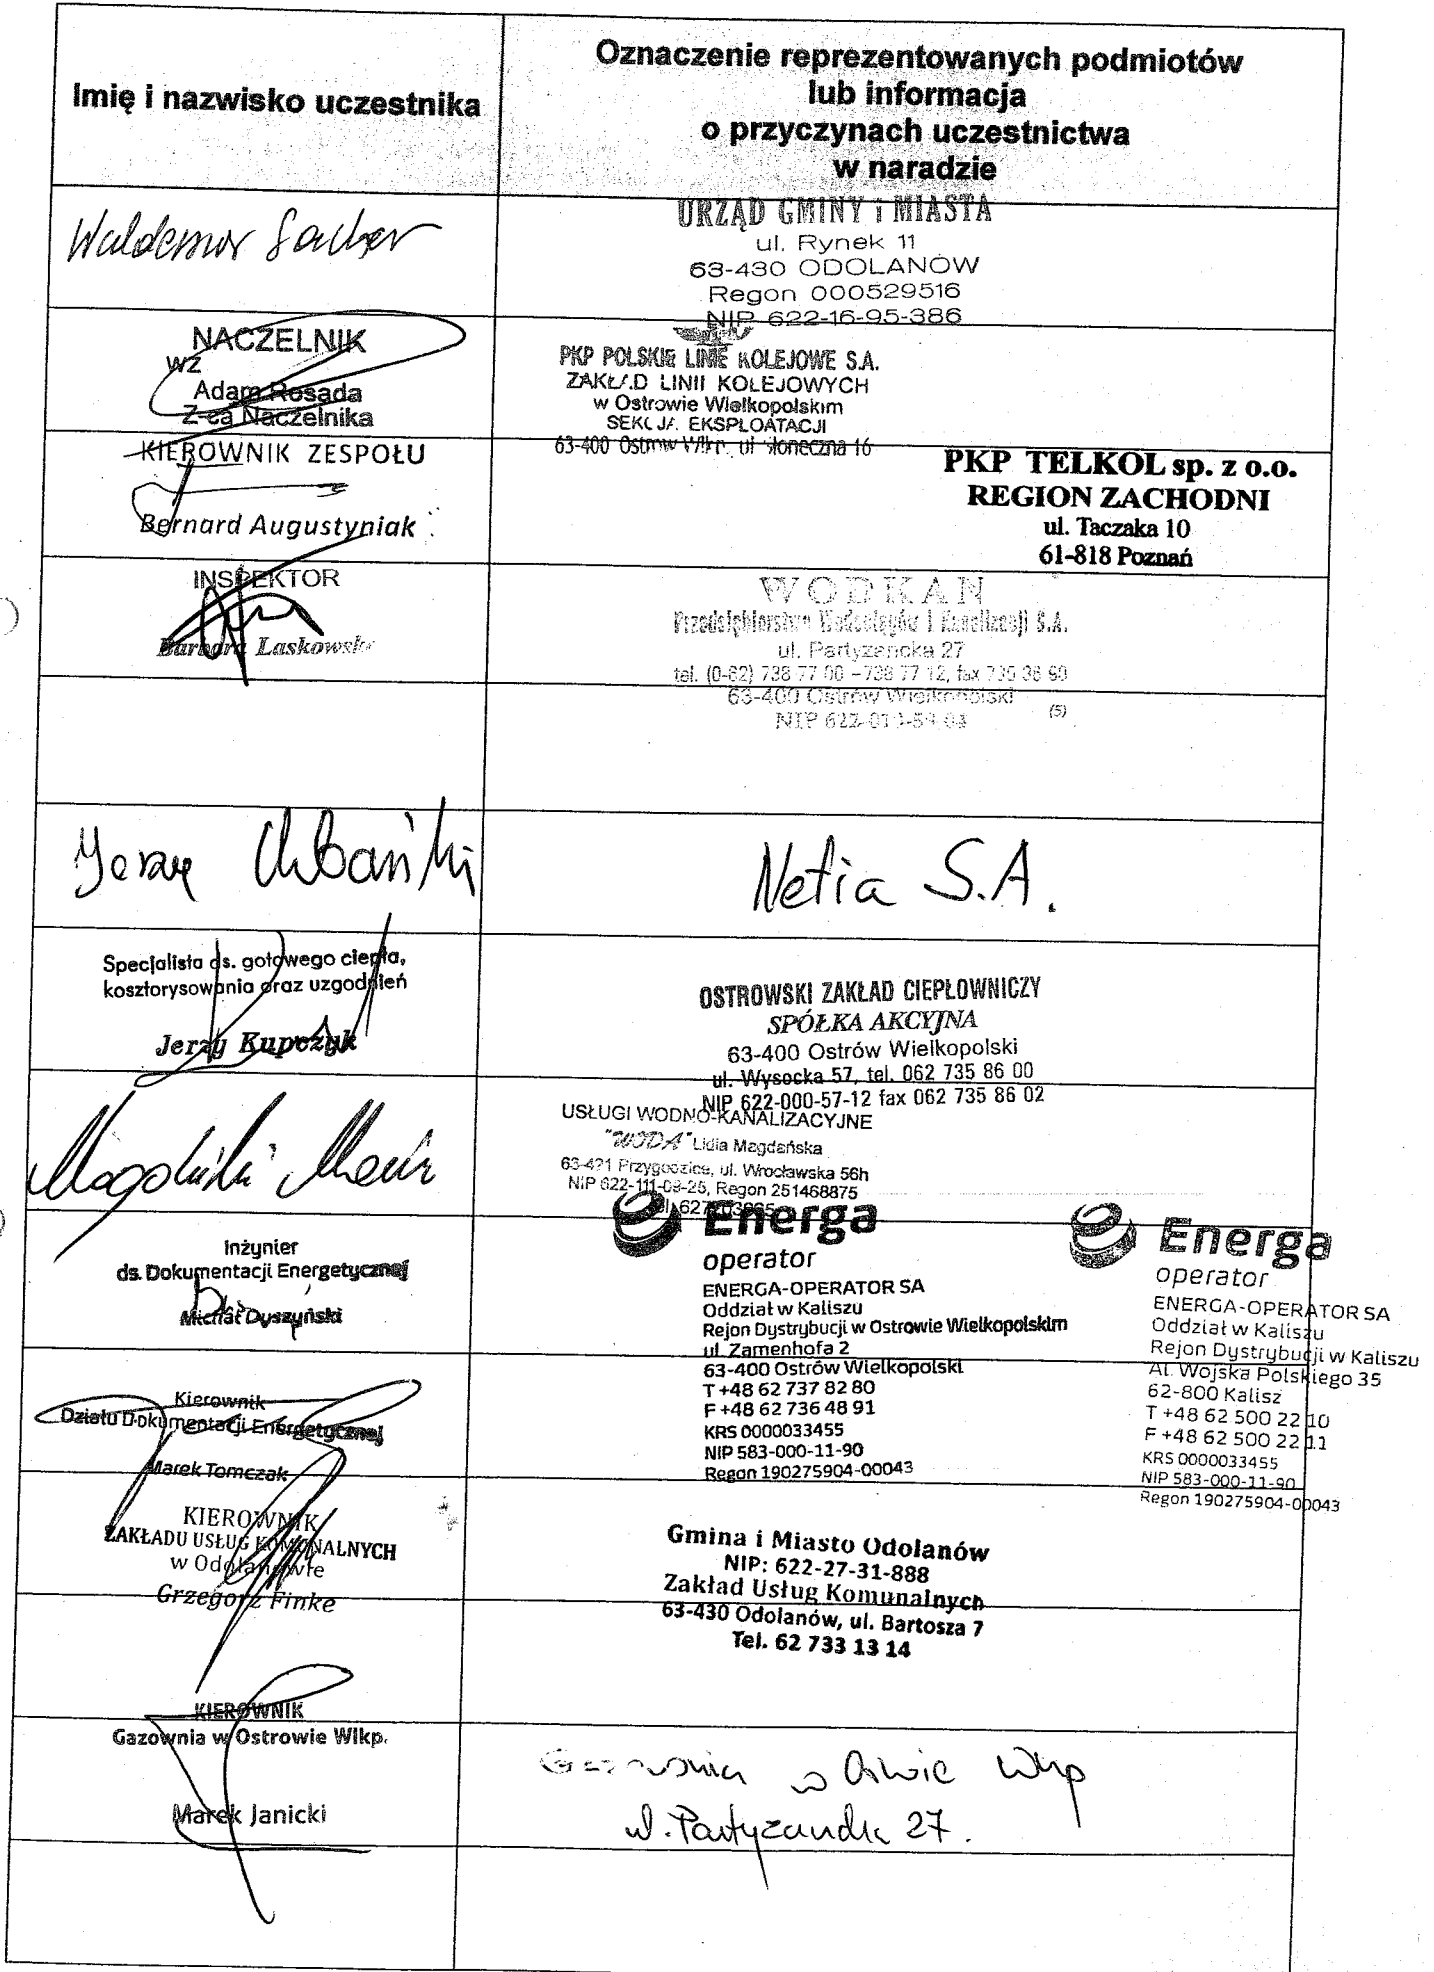 Imię i nazwisko uczestnika
Oznaczenie reprezentowanych podmiotów
lub informacja
o przyczynach uczestnictwa
w naradzie
Waldemar
URZĄD GMINY i MIASTA
ul. Rynek 11
63-430 ODOLANÓW
Regon 000529516
NIP 622-16-95-386
NACZELNIK
wz
Adam Rosada
Z-ca Naczelnika
PKP POLSKIE LINIE KOLEJOWE S.A.
ZAKŁAD LINII KOLEJOWYCH
w Ostrowie Wielkopolskim
SEKCJA EKSPLOATACJI
63-400 Ostrów Wlkp. ul Słoneczna 16
KIEROWNIK ZESPOŁU
Bernard Augustyniak
PKP TELKOL sp. z o.o.
REGION ZACHODNI
ul. Taczaka 10
61-818 Poznań
INSPEKTOR
Barbara Laskowska
WODKAN
Przedsiębiorstwo Wodociągów i Kanalizacji S.A.
ul. Partyzancka 27
tel. (0-62) 738 77 00 – 738 77 12, fax
63-400 Ostrów Wielkopolski
NIP
(5)
Jerzy
Netia S.A.
Specjalista ds. gotowego ciepła,
kosztorysowania oraz uzgodnień
Jerzy Kupczyk
OSTROWSKI ZAKŁAD CIEPŁOWNICZY
SPÓŁKA AKCYJNA
63-400 Ostrów Wielkopolski
ul. Wysocka 57, tel. 062 735 86 00
NIP 622-000-57-12 fax 062 735 86 02
USŁUGI WODNO-KANALIZACYJNE
"WODA" Lidia Magdańska
63-421 Przygodzice, ul. Wrocławska 56h
NIP 622-111-03-25, Regon 251468875
Inżynier
ds. Dokumentacji Energetycznej
Michał Dyszyński
Energa
operator
ENERGA-OPERATOR SA
Oddział w Kaliszu
Rejon Dystrybucji w Ostrowie Wielkopolskim
ul. Zamenhofa 2
63-400 Ostrów Wielkopolski
T +48 62 737 82 80
F +48 62 736 48 91
KRS 0000033455
NIP 583-000-11-90
Regon 190275904-00043
Energa
operator
ENERGA-OPERATOR SA
Oddział w Kaliszu
Rejon Dystrybucji w Kaliszu
Al. Wojska Polskiego 35
62-800 Kalisz
T +48 62 500 22 10
F +48 62 500 22 11
KRS 0000033455
NIP 583-000-11-90
Regon 190275904-00043
Kierownik
Działu Dokumentacji Energetycznej
Marek Tomczak
KIEROWNIK
ZAKŁADU USŁUG KOMUNALNYCH
w Odolanowie
Grzegorz Finke
Gmina i Miasto Odolanów
NIP: 622-27-31-888
Zakład Usług Komunalnych
63-430 Odolanów, ul. Bartosza 7
Tel. 62 733 13 14
KIEROWNIK
Gazownia w Ostrowie Wlkp.
Marek Janicki
Gazownia w Wlkp
ul. Partyzancka 27.